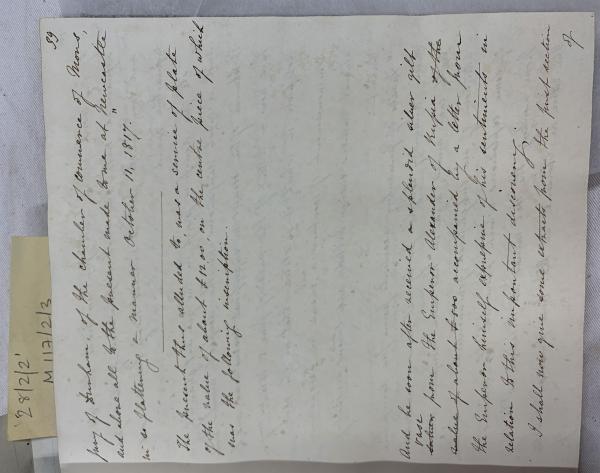 59
pory of Durham, of the chamber of commerce of Mons,
and above all to the "present made to me at Newcastle"
in so flattering a manner October 11, 1817.
The present thus alluded to, was a service of plate
of the value of about £1200, on the centre piece of which
was the following inscription.
And he soon after received a splendid silver gilt
vase
from the Emperor Alexander of Russia of the
value of about £500 accompanied by a letter from
the Emperor himself expressive of his sentiments in
relation to this important discovery.
I shall now give some extracts from the first section
of
28/2/2'
M117/2/3